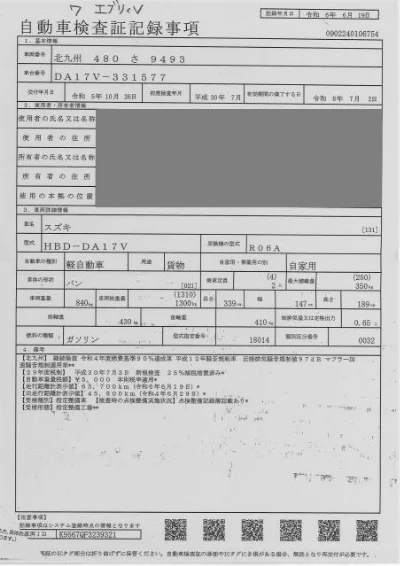 ワ エブリィV
自動車検査証記録事項
記録年月日 令和 6年 6月 19日
0902240106754
1. 基本情報
車両番号 北九州 480 さ 9493
車台番号 DA17V-331577
交付年月日 令和 5年10月26日 初度検査年月 平成30年 7月 有効期間の満了する日 令和 8年 7月 2日
2. 使用者・所有者情報
使用者の氏名又は名称
使用者の住所
所有者の氏名又は名称
所有者の住所
使用の本拠の位置
3. 車両詳細情報
車名 スズキ [131]
型式 HBD-DA17V 原動機の型式 R06A
自動車の種別 軽自動車 用途 貨物 自家用・事業用の別 自家用
車体の形状 バン [021] 乗車定員 (4) 2人 最大積載量 (250) 350kg
車両重量 840kg 車両総重量 (1310) 1300kg 長さ 339cm 幅 147cm 高さ 189cm
前軸重 430kg 後軸重 410kg 総排気量又は定格出力 0.65L
燃料の種類 ガソリン 型式指定番号 18014 類別区分番号 0032
4. 備考
【北九州】 継続検査 令和4年度燃費基準90%達成車 平成12年騒音規制車 近接排気騒音規制値97dB マフラー加
速騒音規制適用車**
【29年度税制】 平成30年7月3日 新規検査 25%減税措置済み*
【自動車重量税額】 ¥5,000 本則税率適用*
【走行距離計表示値】 63,700km (令和6年6月19日)*
【旧走行距離計表示値】 45,800km (令和4年6月29日)*
【受検種別】 指定整備車 【検査時の点検整備実施状況】 点検整備記録簿記載あり*
【受検形態】 指定整備工場**
【注意事項】
記録事項はシステム登録時点の情報となります
K9667QF3239321